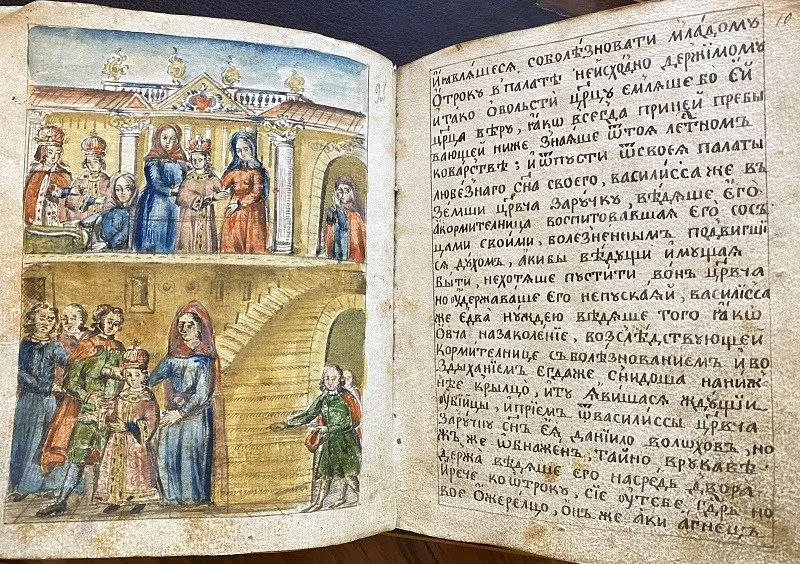 93
10
И҆ꙗвлѧшесѧ соболѣзновати младомꙋ
Ѻтрокꙋ в палатѣ неисходно держимомꙋ
И тако ѡвольсти цр҃цꙋ емлѧше бо ей
цр҃ца вѣрꙋ, ꙗкѡ всегда при ней пребы
вающей ниже знаѧше ѿ тоѧ лестномъ
коварствѣ: и ѿпꙋсти ѿ своеѧ палаты
любезнаго сн҃а своего, василисса же въ
земши цр҃вча за рꙋчкꙋ, ведѧше его
а кормителница воспитовавшаѧ его сос
цами своими, болезненнымъ подвигши
сѧ дꙋхомъ, аки бы ведꙋщи имꙋщаѧ
быти, не хотѧше пꙋстити вонъ цр҃вча
но ꙋдержаваше его не пꙋскаѧй, василисса
же едва нꙋждею ведѧше того ꙗкѡ
Ѻвча на заколенїе, возслѣдствꙋющей
кормителнице съ болѣзнованиемъ и во
здыханїемъ егдаже снидоша на ниж
нѣе крылцо, и тꙋ ꙗвишасѧ ждꙋщии
ꙋбийцы, и прїемъ ѿ василиссы цр҃вча
за рꙋчкꙋ сн҃ъ еѧ данїило волѡховъ, но
жъ же ѡбнаженъ, тайно в рꙋкавѣ
держа ведѧше его насредь двора
И рече ко ѻтрокꙋ, сїе ꙋ тебе, гдⷭ҇рь но
вое Ѻжерелцо, онъ же аки агнецъ